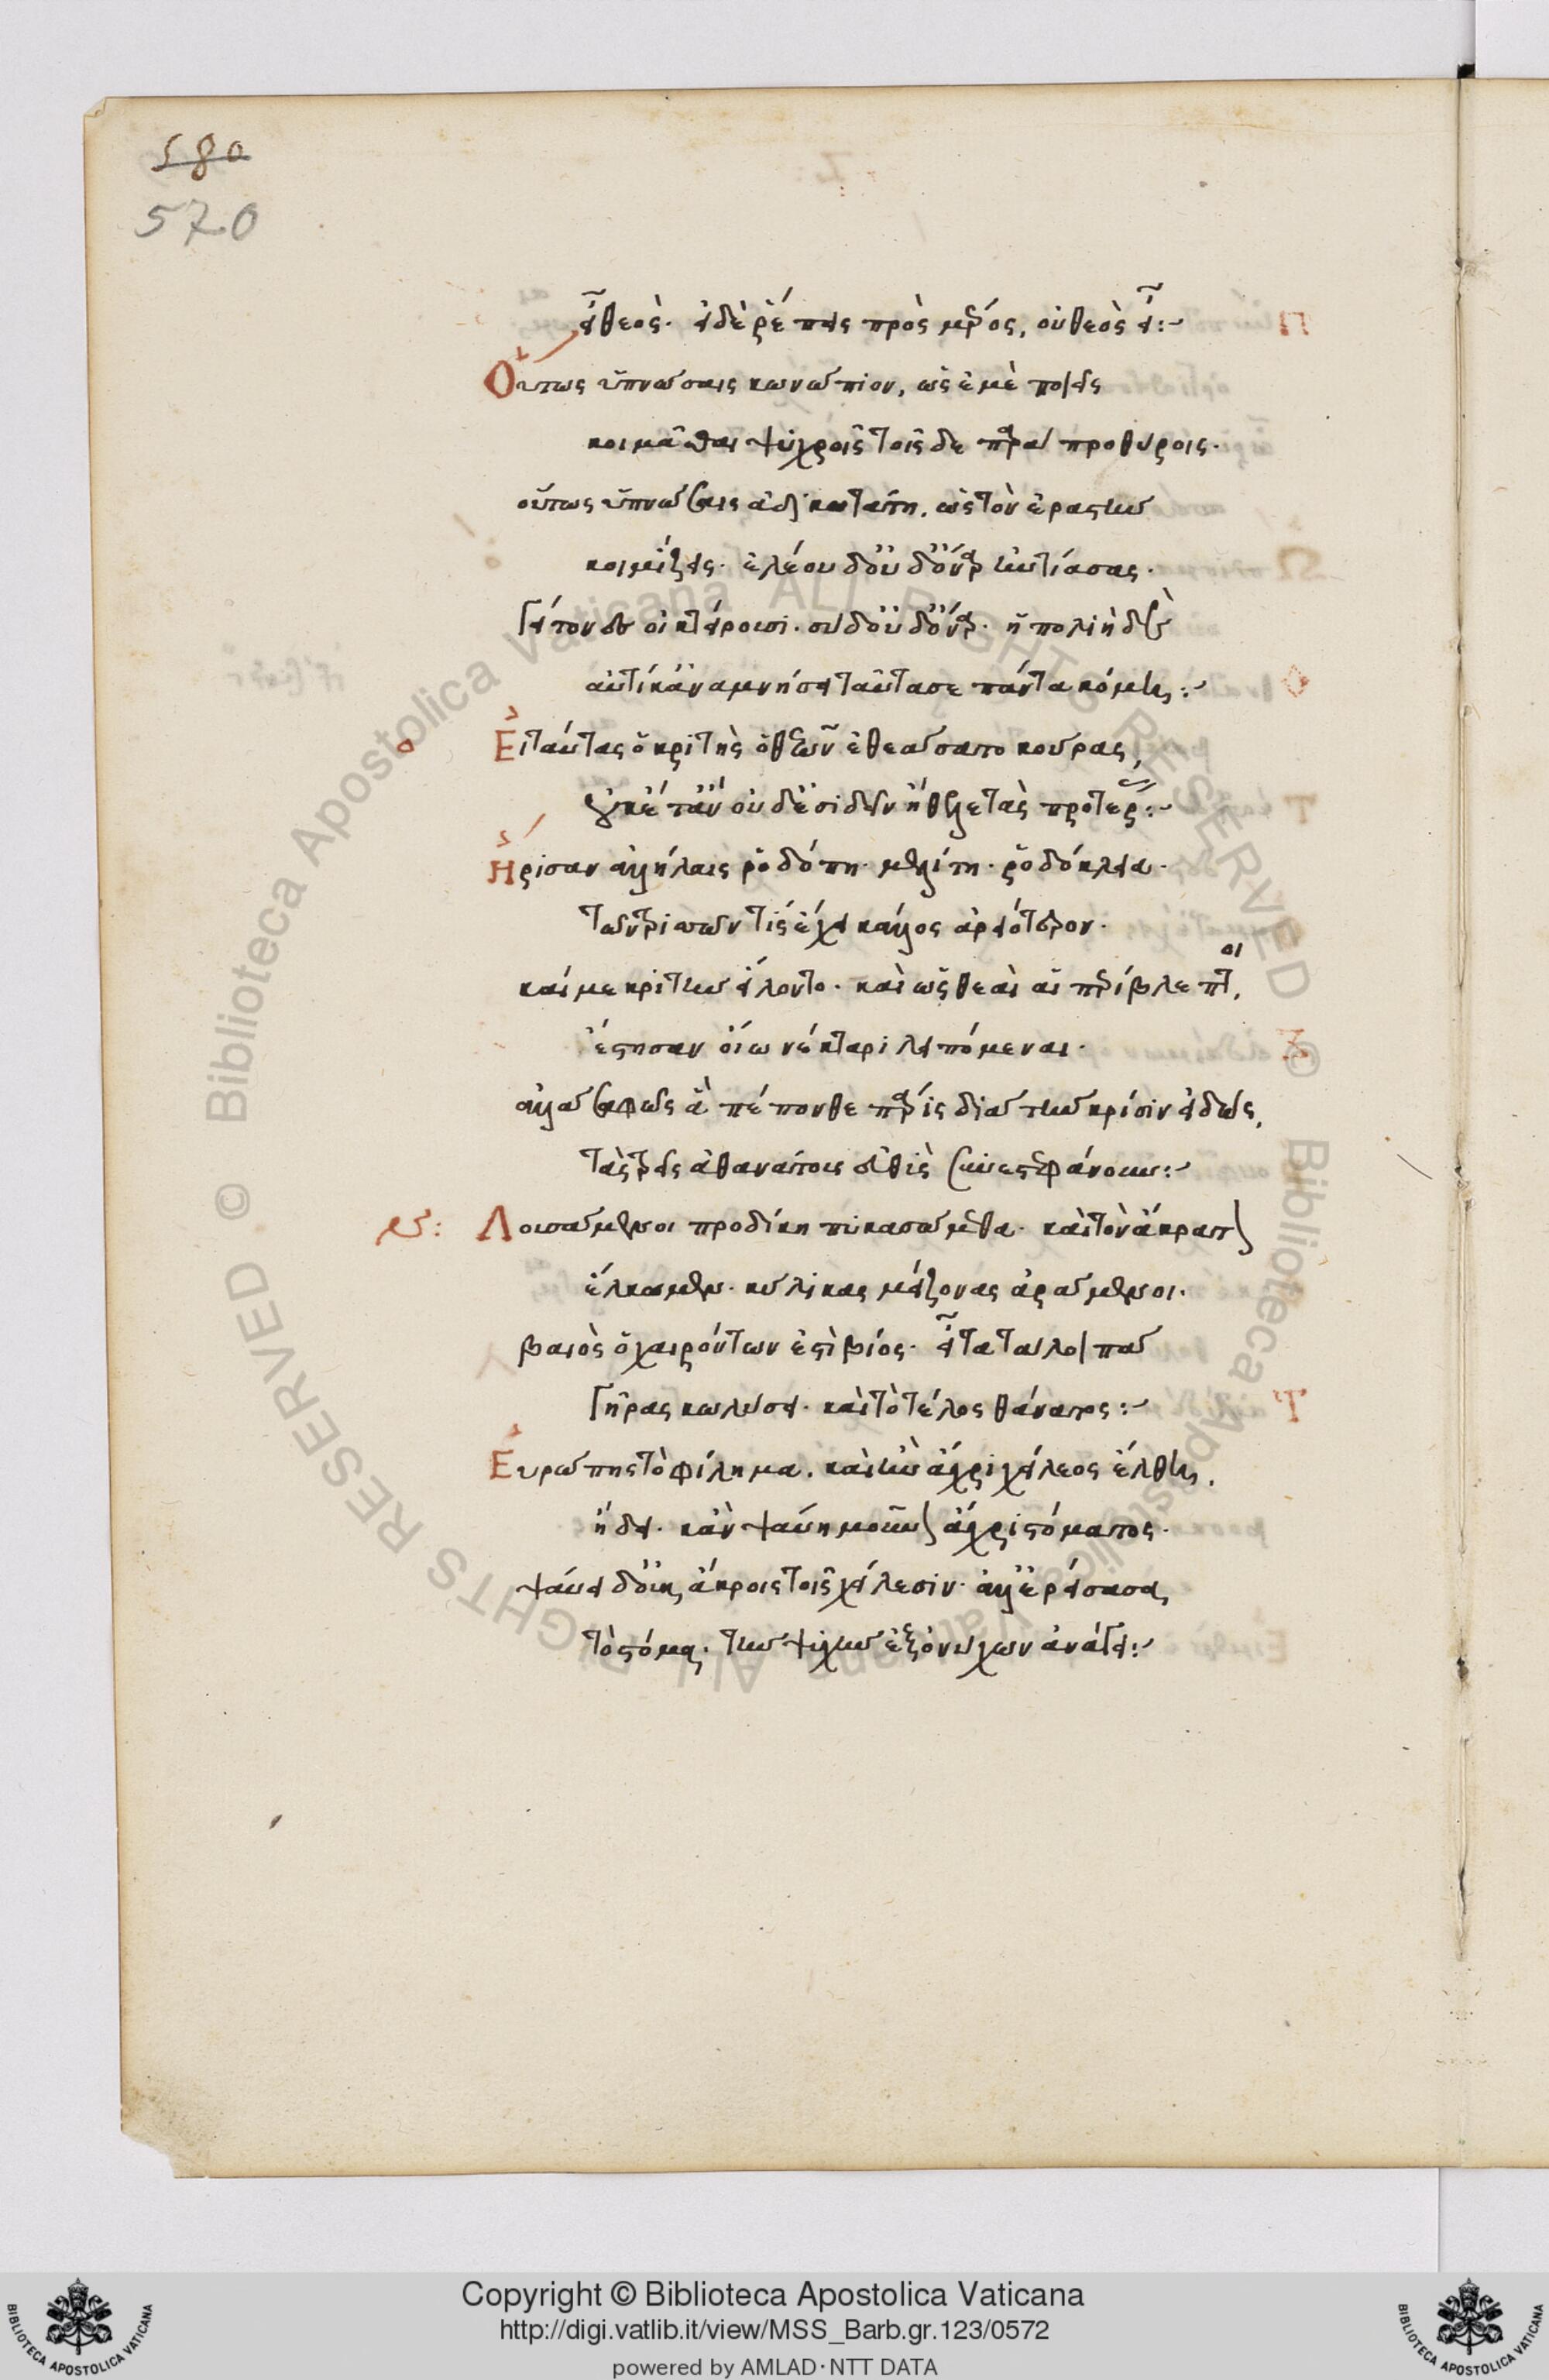 580
570
εἶ θεός. εἰ δὲ ῥέπεις πρὸς μέρος, οὐ θεὸς εἶ:~
Οὕτως ὑπνώσαις κωνώπιον, ὡς ἐμὲ ποιεῖς
κοιμᾶσθαι ψυχροῖς τοῖσδε παρὰ προθύροις.
οὕτως ὑπνώσαις ἀδικωτάτη, ὡς τὸν ἐραστὴν
κοιμίζεις. ἐλέου δ' οὐδ' ὄναρ ἠντίασας.
γείτονες οἰκτείρουσι. σὺ δ' οὐδ' ὄναρ. ἡ πολιὴ δὲ
αὐτίκ' ἀναμνήσει ταῦτά σε πάντα κόμη:~
Εἰ ταύτας ὁ κριτὴς ὁ θεῶν ἐθεάσατο κούρας,
οὐκέτ' ἂν οὐδ' ἐσιδεῖν ἤθελε τὰς προτέρας:~
Ἤρισαν ἀλλήλαις ῥοδόπη. μελίτη. ῥοδόκλεια.
τῶν τρισσῶν τίς ἔχει κάλλος ἀρειότερον.
καί με κριτὴν εἵλοντο. καὶ ὡς θεαὶ αἱ περίβλεπτοι,
ἔστησαν οἴω νέκταρι λειπόμεναι.
ἀλλὰ σαφῶς ἃ πέπονθε πάρις διὰ τὴν κρίσιν εἰδώς,
τὰς τρεῖς ἀθανάτους εὐθὺς συνεστεφάνουν:~
Λουσάμενοι προδίκη πυκασώμεθα. καὶ τὸν ἄκρατον
ἕλκωμεν. κύλικας μείζονας ἀράμενοι.
βαιὸς ὁ χαιρόντων ἐστὶ βίος. εἶτα τὰ λοιπὰ
γῆρας κωλύσει. καὶ τὸ τέλος θάνατος:~
Εὐρώπης τὸ φίλημα. καὶ ἢν ἄχρι χείλεος ἔλθη,
ἡδύ. κἂν ψαύση μοῦνον ἄχρι στόματος.
ψαύει δ' οὐκ ἄκροις τοῖς χείλεσιν. ἀλλ' ἐρείσασα
τὸ στόμα. τὴν ψυχὴν ἐξ ὀνύχων ἀνάγει:~
Copyright © Biblioteca Apostolica Vaticana
http://digi.vatlib.it/view/MSS_Barb.gr.123/0572
powered by AMLAD·NTT DATA